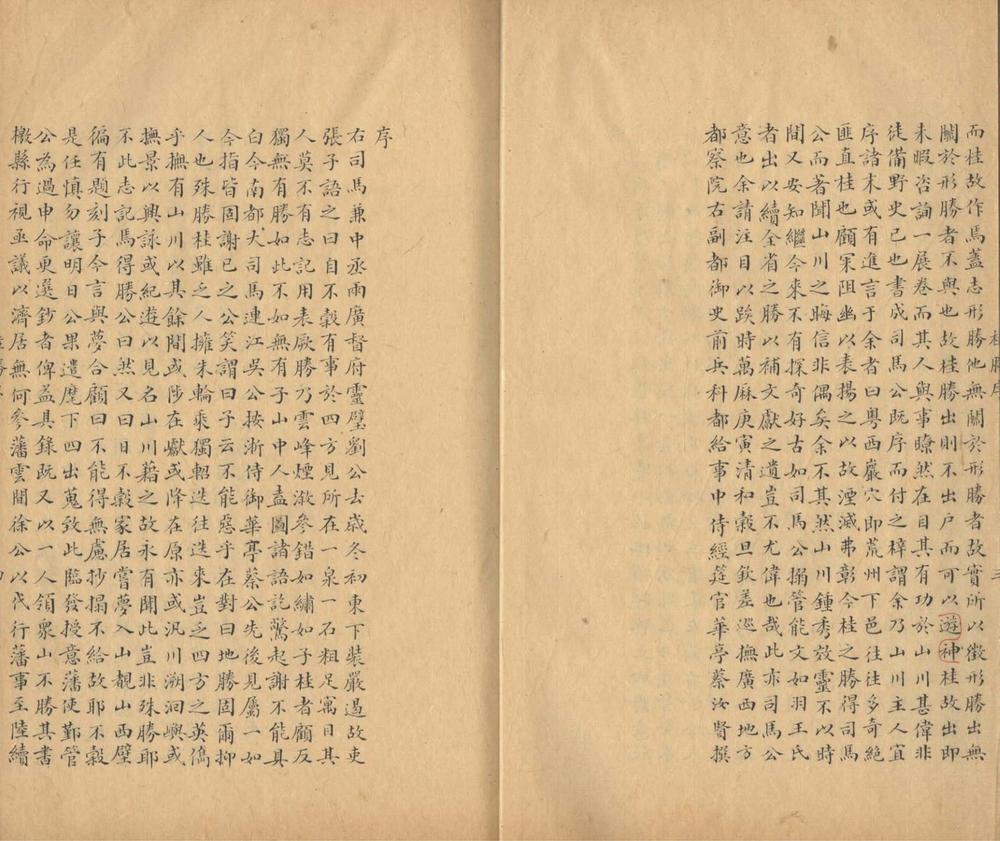 而桂故作焉蓋志形勝他無關於形勝者故實所以徵形勝出無
關於形勝者不與也故桂勝出則不出戶而可以遊神桂故出即
未暇咨詢一展卷而其人與事瞭然在目其有功於山川甚偉非
徒備野史已也書成司馬公既序而付之梓謂余乃山川主人宜
序諸末或有進言于余者曰粵西巖穴即荒州下邑往往多奇絕
匪直桂也顧罙阻幽以表揚之以故湮滅弗彰今桂之勝得司馬
公而著聞山川之晦信非偶矣余不其然山川鍾秀效靈不以時
間又安知繼今來不有探奇好古如司馬公搦管能文如羽王氏
者出以續全省之勝以補文獻之遺豈不尤偉也哉此亦司馬公
意也余請注目以跂時萬麻庚寅清和穀旦欽差巡撫廣西地方
都察院右副都御史前兵科都給事中侍經筵官華亭蔡汝賢撰
序
右司馬兼中丞兩廣督府靈璧劉公去歲冬初東下裝嚴過故吏
張子語之曰自不穀有事於四方見所在一泉一石粗足寓目其
人莫不有志記用表厥勝乃雲峰煙漵參錯如繡如子桂者顧反
獨無有勝如此不如無有子山中人盍圖諸語訖驚起謝不能具
白今南都大司馬連江吳公按浙侍御華亭蔡公先後見屬一如
今指皆固謝已之公笑謂曰子云不能惡乎在對曰地勝固爾抑
人也殊勝桂雖乏人擁朱輪乘獨軺迭往迭來豈乏四方之英儁
乎撫有山川以其餘閒或陟在巘或降在原亦或汎川溯洄嶼或
撫景以興詠或紀遊以見名山川藉之故永有聞此豈非殊勝耶
不此志記焉得勝公曰然又曰日不穀家居嘗夢入山覩山西壁
徧有題刻子今言與夢合顧曰不能得無慮抄搨不給故耶不穀
是任慎勿讓明日公果遣麾下四出蒐致此臨發授意藩使鄞管
公為過申命更選鈔者俾益具錄既又以一人領眾山不勝其書
檄縣行視亟議以濟居無何參藩雲間徐公以代行藩事至陸續